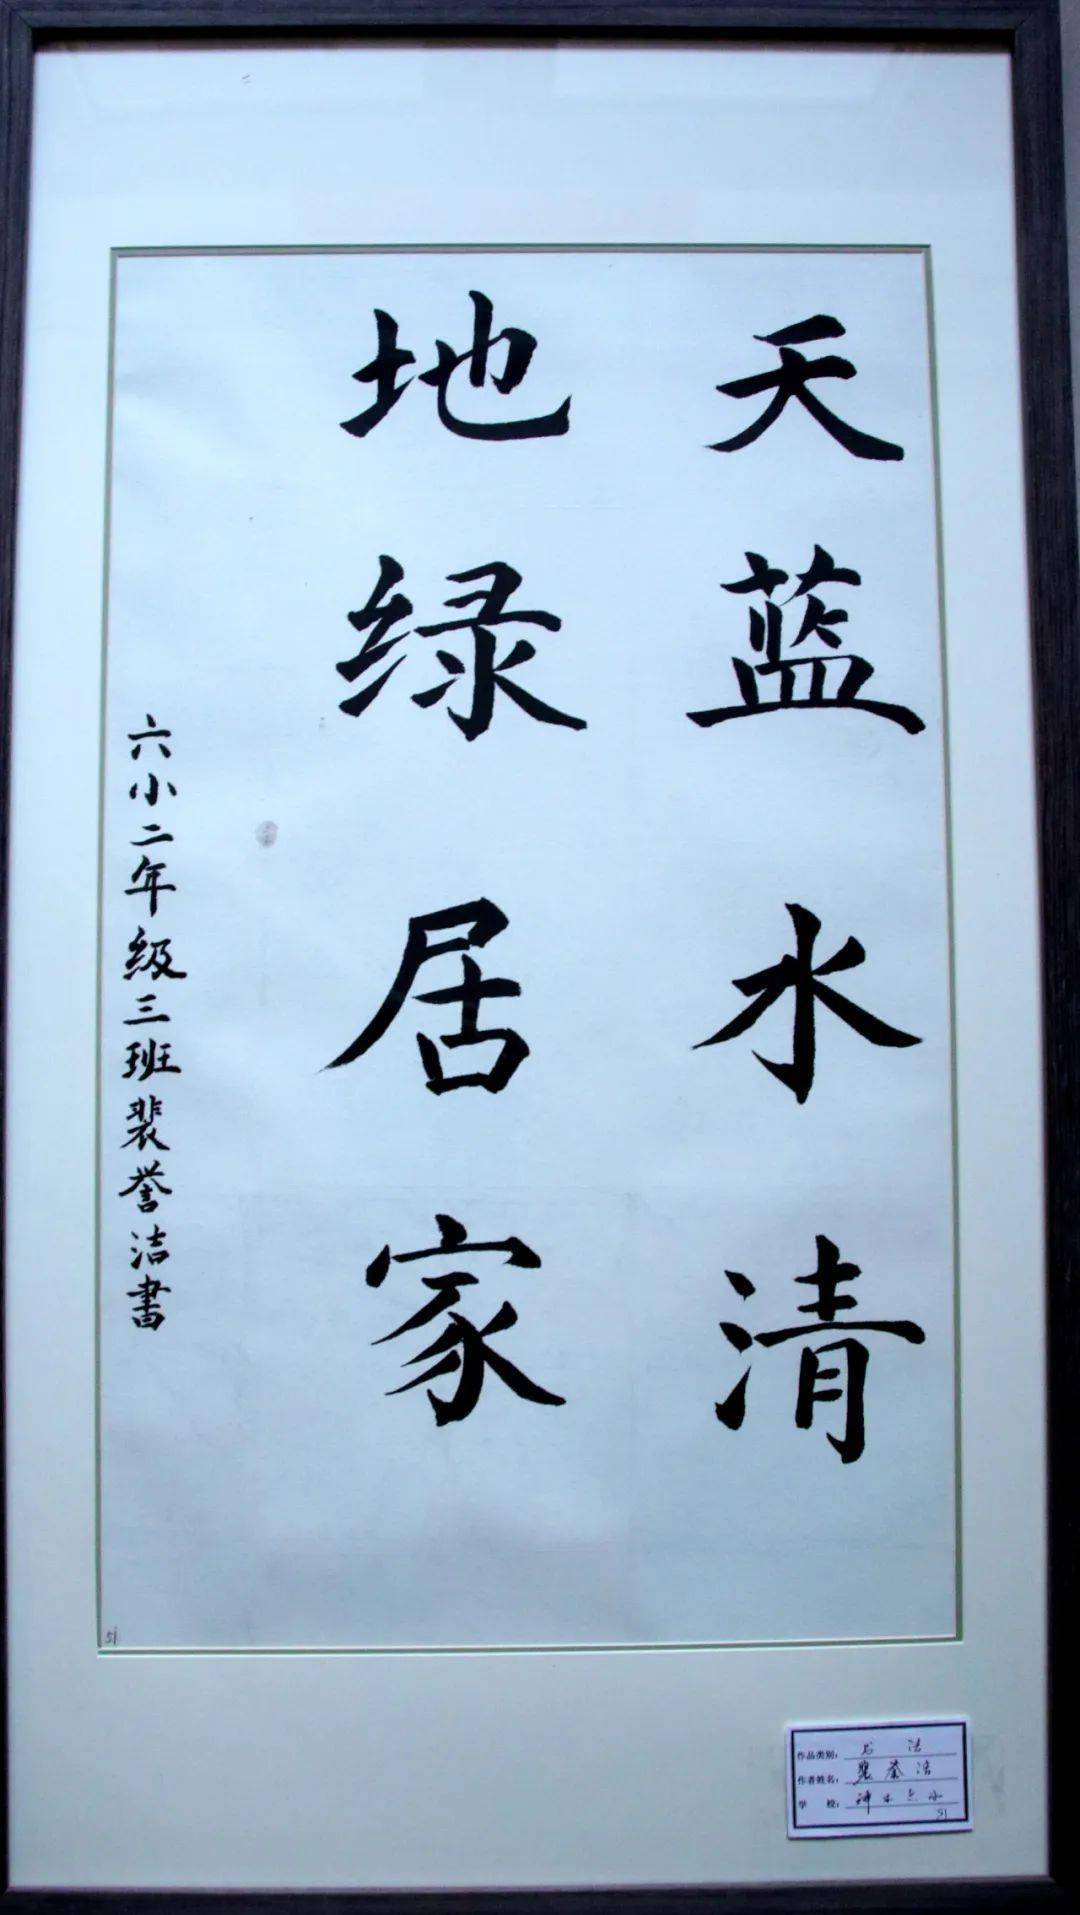 天蓝水清
地绿居家
六小二年级三班裴誉洁書
51
作品类别：书法
作者姓名：裴誉洁
学校：神木六小
51